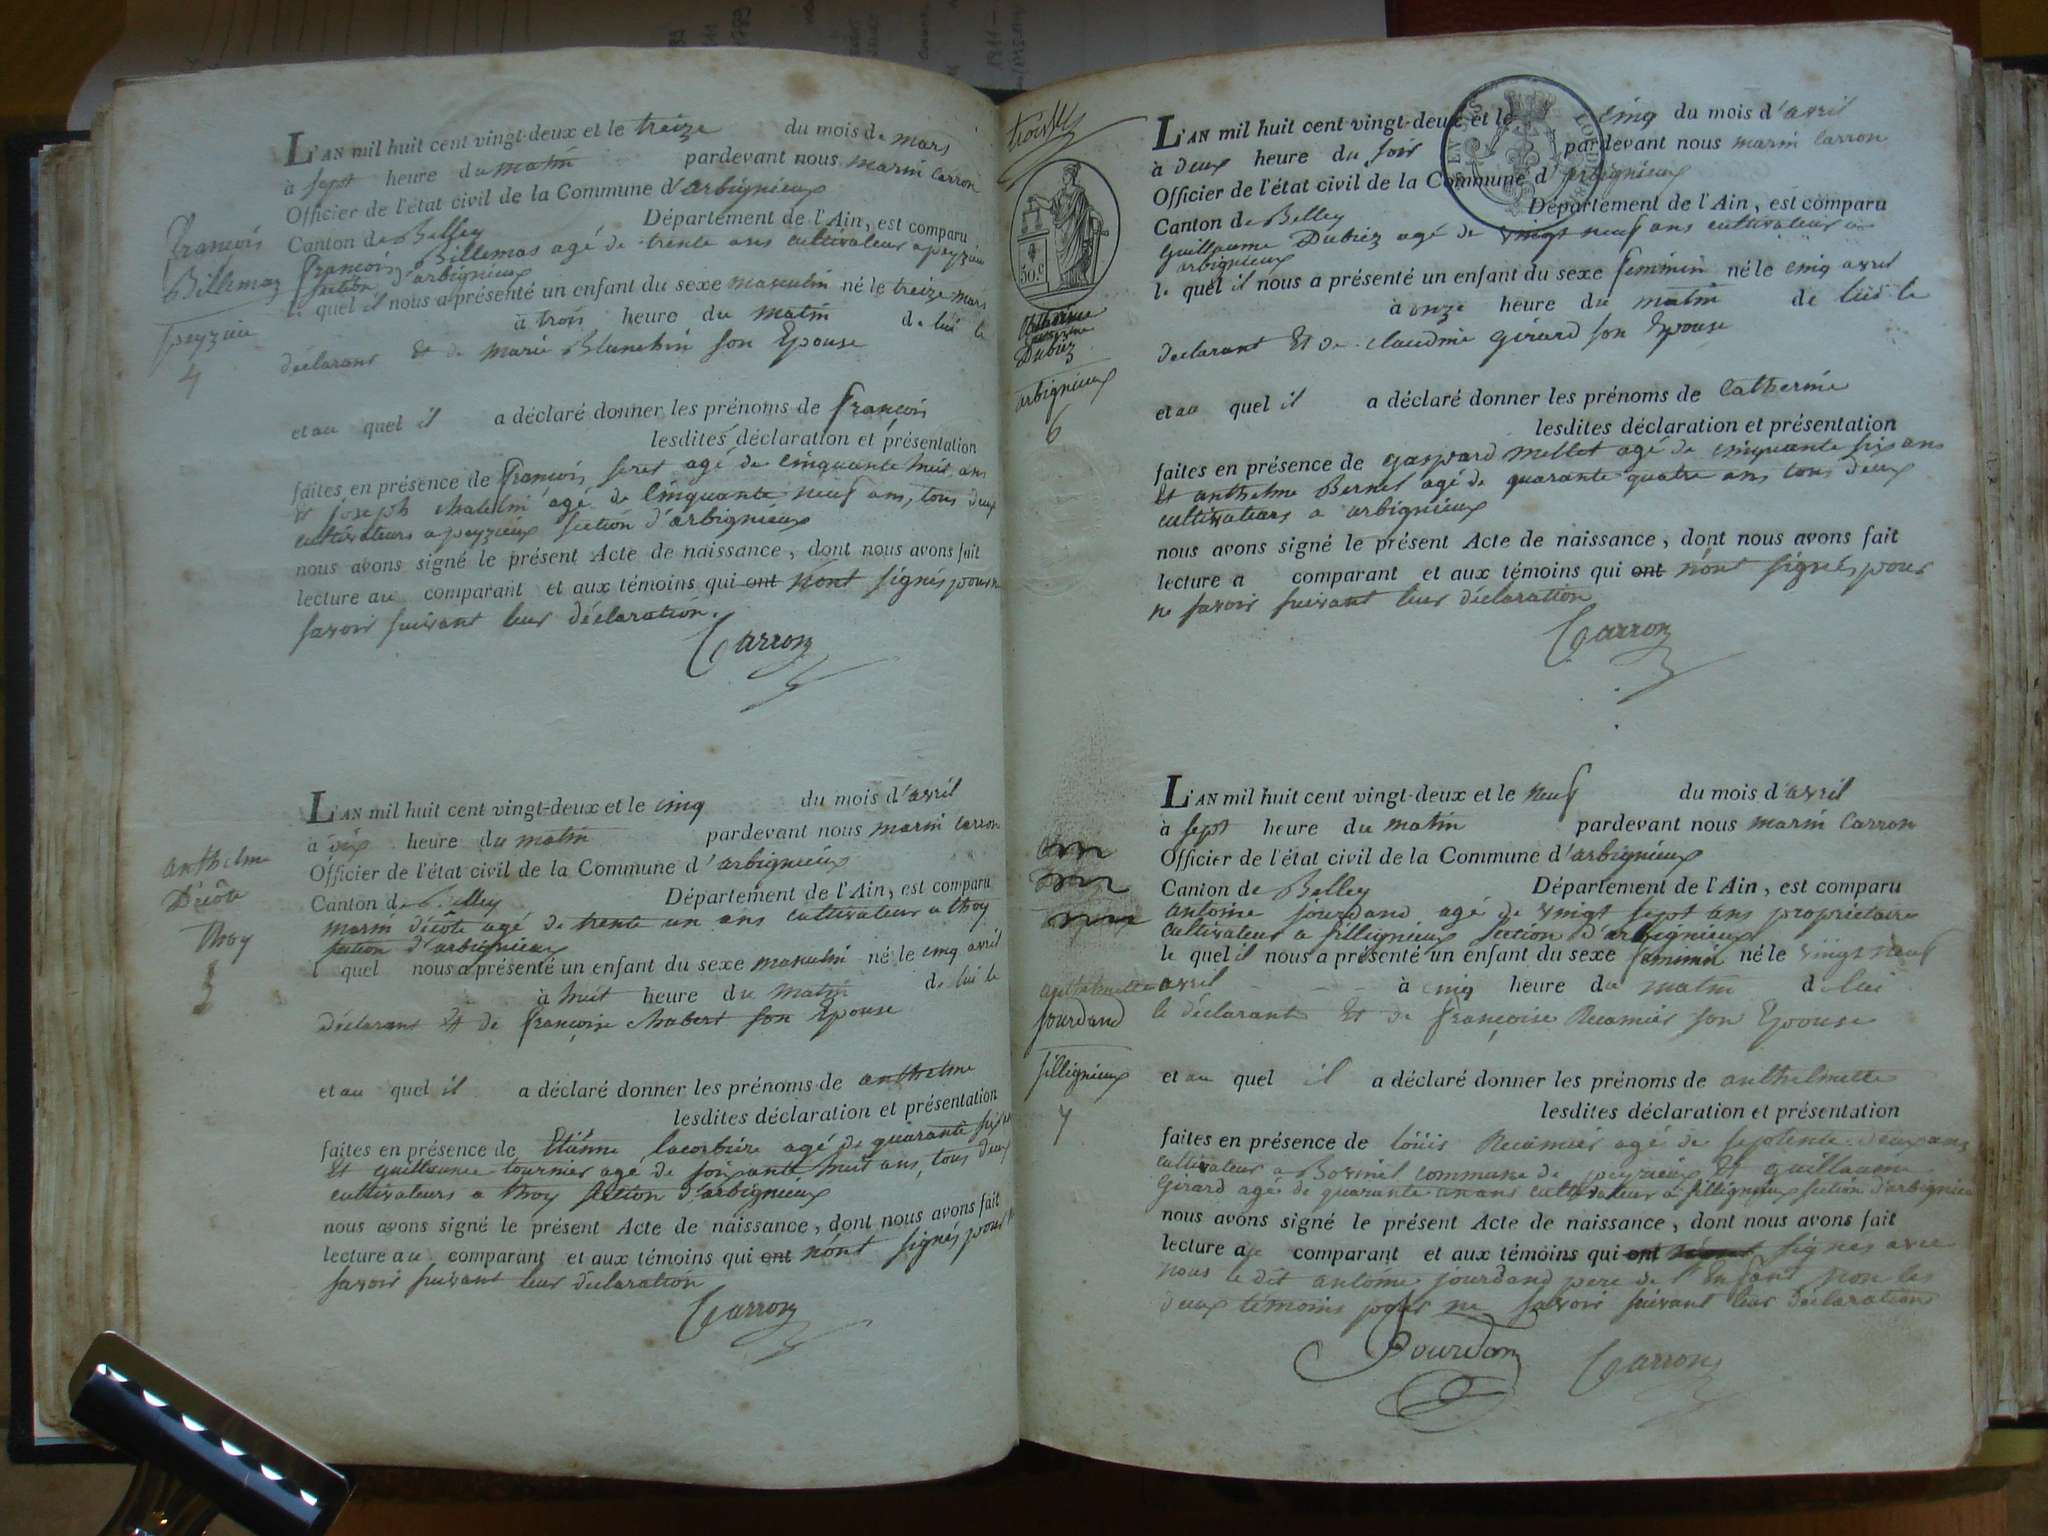 L'AN mil huit cent vingt-deux et le treize du mois de mars
à sept heure du matin pardevant nous marin Carron
Officier de l'état civil de la Commune d'arbignieux
Canton de Belley Département de l'Ain, est comparu
françois Billemas agé de trente ans cultivateur a peyzieu
section d'arbignieux
le quel il nous a présenté un enfant du sexe masculin né le treize mars
à trois heure du matin de lui le
déclarant Et de marie Blanchin son Epouse
et au quel il a déclaré donner les prénoms de françois
lesdites déclaration et présentation
faites en présence de françois seret agé de cinquante huit ans
et joseph chalelin agé de cinquante neuf ans, tous deux
cultivateurs a peyzieux section d'arbignieux
nous avons signé le présent Acte de naissance, dont nous avons fait
lecture au comparant et aux témoins qui ont n'ont signés pour n
savoir suivant leur déclaration.
Carron
françois
Billemaz
peyzieu
4
L'AN mil huit cent vingt-deux et le cinq du mois d'avril
à dix heure du matin pardevant nous marin Carron
Officier de l'état civil de la Commune d'arbignieux
Canton de Belley Département de l'Ain, est comparu
marin décôte agé de trente un ans cultivateur a thoy
section d'arbignieux
l quel nous a présenté un enfant du sexe masculin né le cinq avril
à huit heure du matin de lui le
déclarant Et de françoise chabert son Epouse
et au quel il a déclaré donner les prénoms de anthelme
lesdites déclaration et présentation
faites en présence de Etiénne lacorbière agé de quarante six
Et guillaume tournier agé de soixante huit ans, tous deux
cultivateurs a thoy section d'arbignieux
nous avons signé le présent Acte de naissance, dont nous avons fait
lecture au comparant et aux témoins qui ont n'ont signés pour n
savoir suivant leur déclaration
Carron
anthelme
Décôte
thoy
5
L'AN mil huit cent vingt-deux et le cinq du mois d'avril
à deux heure du soir pardevant nous marin Carron
Officier de l'état civil de la Commune d'arbignieux
Canton de Belley Département de l'Ain, est comparu
guillaume Dubiez agé de vingt neuf ans cultivateur a
arbignieux
le quel il nous a présenté un enfant du sexe feminin né le cinq avril
à onze heure du matin de lui le
déclarant Et de claudine girard son Epouse
et au quel il a déclaré donner les prénoms de Catherine
lesdites déclaration et présentation
faites en présence de gaspard mellet agé de cinquante six ans
Et anthelme Bernet agé de quarante quatre ans tous deux
cultivateurs a arbignieux
nous avons signé le présent Acte de naissance, dont nous avons fait
lecture a comparant et aux témoins qui ont n'ont signés pour
ne savoir suivant leur déclaration
Carron
50 c
Dubiez
arbignieux
6
L'AN mil huit cent vingt-deux et le neuf du mois d'avril
à sept heure du matin pardevant nous marin Carron
Officier de l'état civil de la Commune d'arbignieux
Canton de Belley Département de l'Ain, est comparu
antoine jourdand agé de vingt sept ans proprietaire
cultivateur a sillignieux section d'arbignieux
le quel il nous a présenté un enfant du sexe feminin né le vingt neuf
avril à cinq heure du matin de lui
le déclarant Et de françoise Recamier son Epouse
et au quel il a déclaré donner les prénoms de anthelmette
lesdites déclaration et présentation
faites en présence de loüis Recamier agé de septente deux ans
cultivateur a Bovinel commune de peyzieux Et guillaume
girard agé de quarante un ans cultivateur a sillignieux section d'arbignieu
nous avons signé le présent Acte de naissance, dont nous avons fait
lecture au comparant et aux témoins qui ont signés avec
nous le dit antoine jourdand pere de l'Enfant non les
deux témoins pour ne savoir suivant leur déclaration
Jourdan Carron
anthelmette
jourdand
sillignieux
7